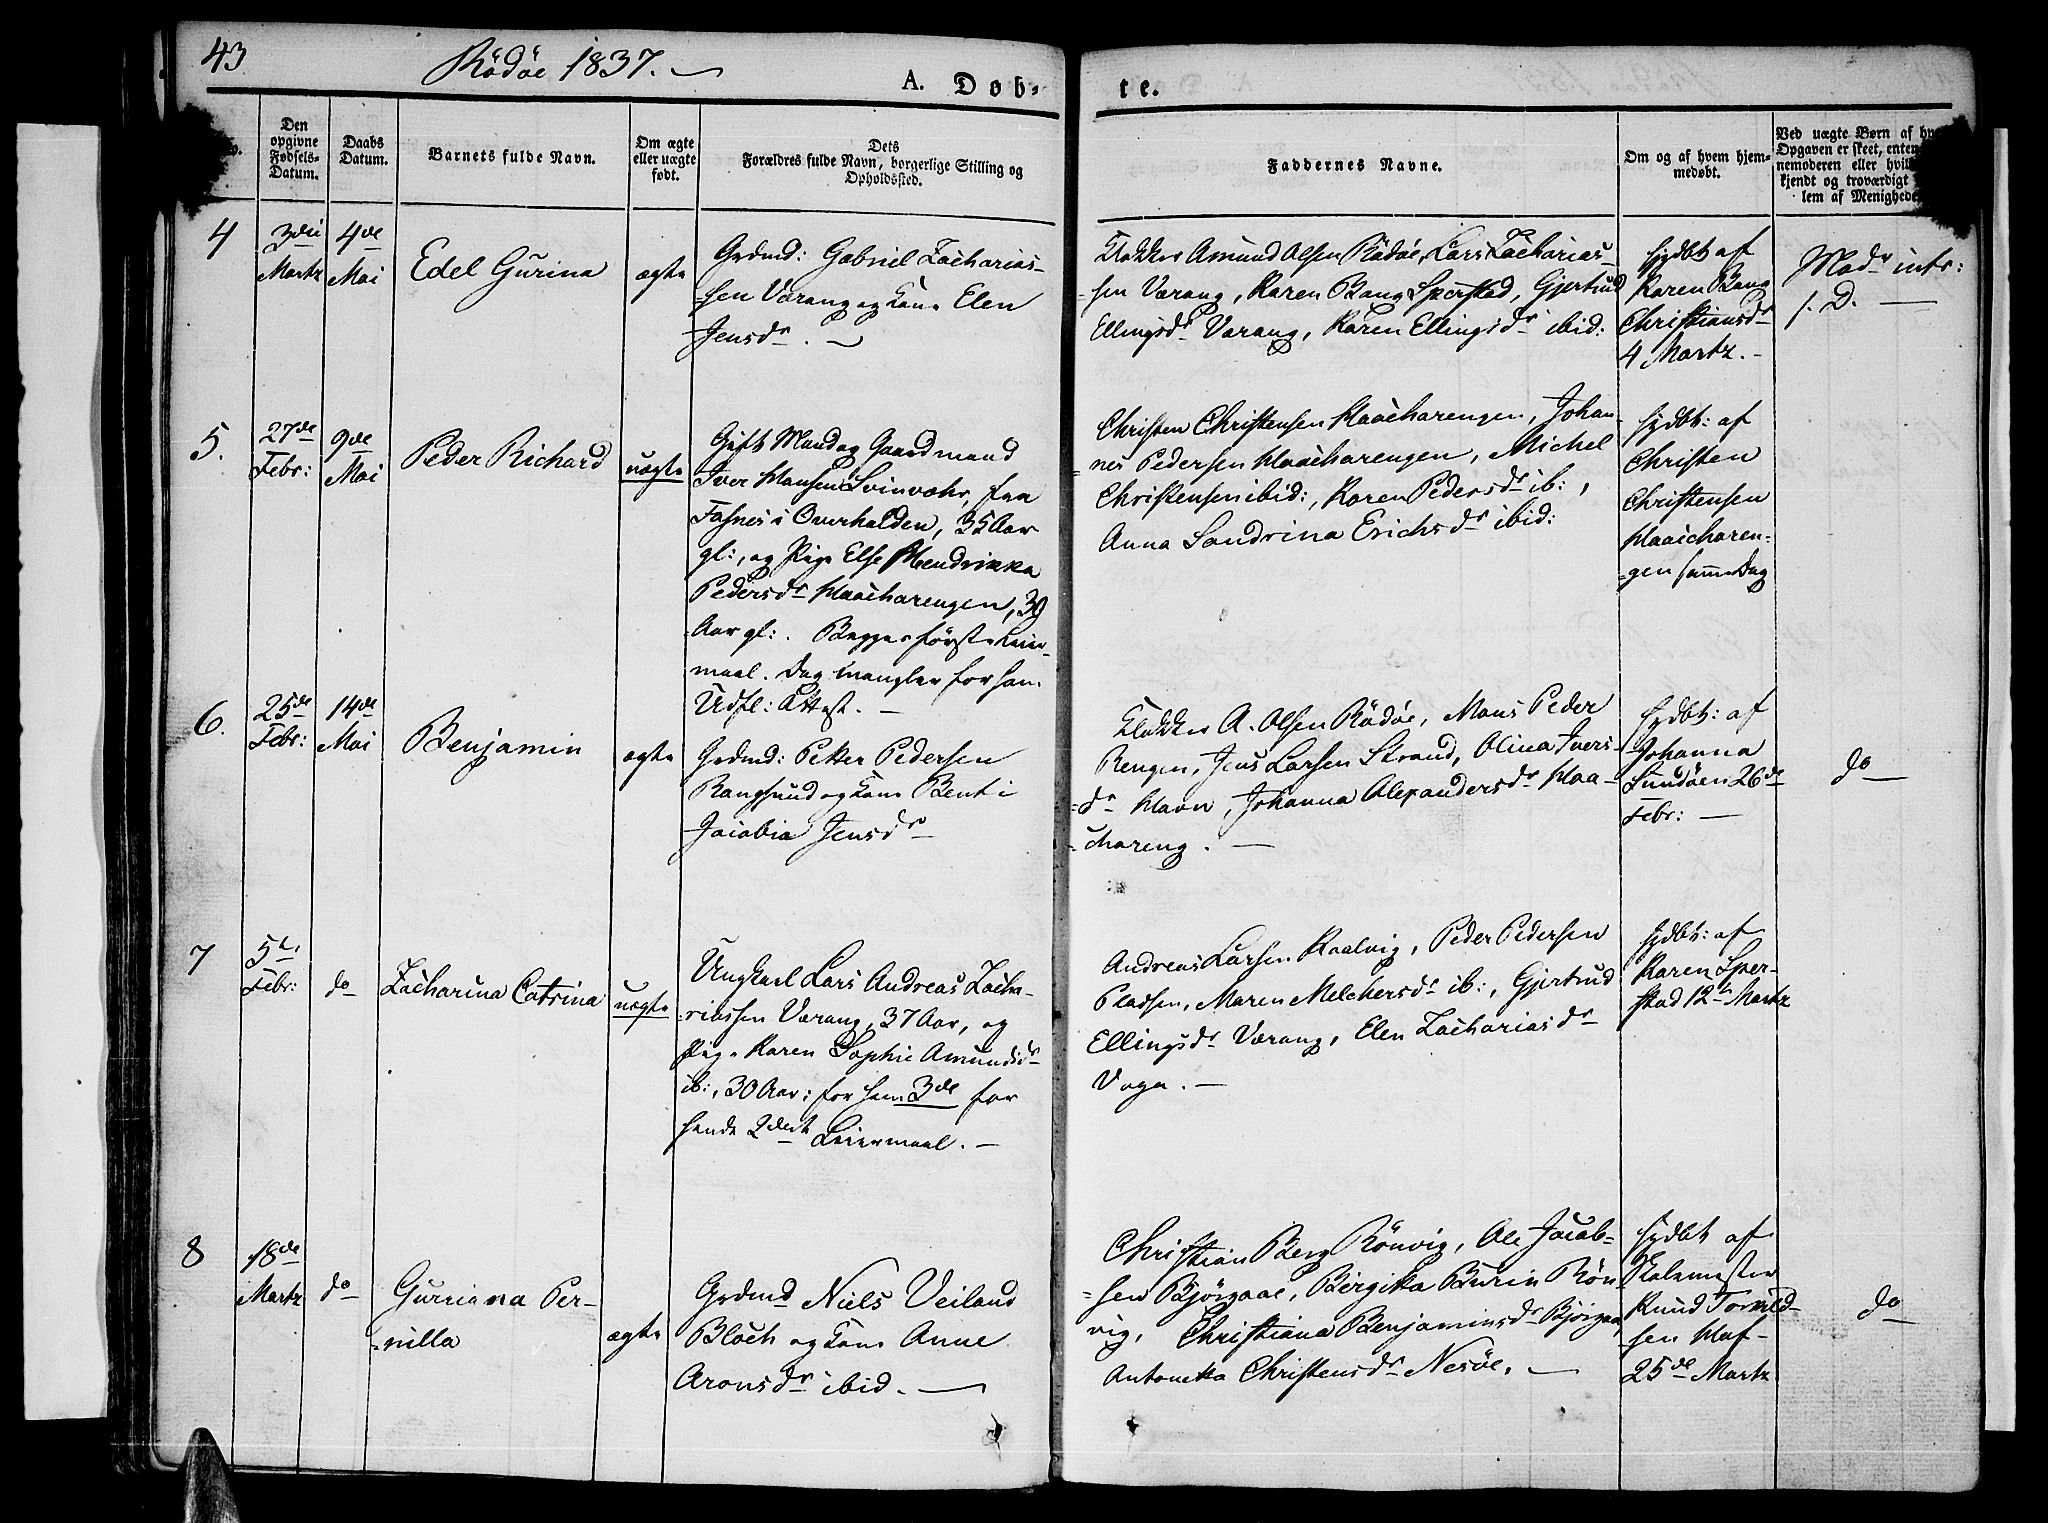 43
Rödöe 1837.
A. Døb-
te.
No.
Den
opgivne
Fødsels-
Datum.
Daabs
Datum.
Barnets fulde Navn.
Om ægte
eller uægte
født.
Dets
Forældres fulde Navn, borgerlige Stilling og
Opholdssted.
Faddernes Navne.
Om og af hvem hjem-
medøbt.
Ved uægte Børn af
Opgaven er skeet, enten
nemoderen eller
kjendt og troværdigt
lem af Menighede
4
3die
Martz
4de
Mai
Edel Gurina
ægte
Grdmd: Gabriel Zacharias-
sen Værang og Kone Elen
Jensdr. —
Klokker Amund Olsen Rödöe, Lars Zacharias-
sen Værang, Karen Bang Sperstad, Gjertrud
Ellingsdr Værang, Karen Ellingsdr ibid:
hjdbt af
Karen Bang
Christiansdr
4 Martz. -
Modr intr:
s. D. —
5.
27de
Febr:
9de
Mai
Peder Richard
uægte
Gift Mand og Gaardmand
Iver Hansen Svinvær, fra
Fosnes i Overhalden, 35 Aar
gl:, og Pige Else Hendrikka
Pedersdr Haacharengen, 39
Aar gl:. Begges første Leier-
maal. Dog mangler for ham
Udfl: Attest. —
Christen Christensen Haacharengen, Johan-
nes Pedersen Haacharengen, Michel
Christensen ibid:, Karen Pedersdr ib:,
Anna Sandrina Erichsdr ibid:
hjdbt: af
Christen
Christensen
Haacharen-
gen samme Dag
6.
25de
Febr:
14de
Mai
Benjamin
ægte
Grdmd: Petter Pedersen
Rangsund og Kone Bent
Jacobia Jensdr
Klokker A. Olsen Rödöe, Mons Peder
Rengen, Jens Larsen Strand, Olina Ivers-
dr Havn, Johanna Alexandersdr Haa-
chareng. —
hjdbt: af
Johanna
Sundöen 26de
Febr: —
do
7
5te
Febr:
do
Zacharina Catrina
uægte
Ungkarl Lars Andreas Zacha-
riassen Værang, 37 Aar, og
Pige Karen Sophie Amundsdr
ib:, 30 Aar: for ham 3de for
hende 2det Leiermaal. —
Andreas Larsen Kaalvig, Peder Pedersen
Pladsen, Maren Melchersdr ib:, Gjertrud
Ellingsdr Værang, Elen Zachariasdr
Vaga. —
hjdbt: af
Karen Sper-
stad 12te Martz
8
18de
Martz
do
Gurriana Per-
nilla
ægte
Grdmd Niels Veiland
Bloch og Kone Anne
Aronsdr ibid. —
Christian Berg Rönvig, Ole Jacob-
sen Bjørgaae, Birgitta Burin Rön-
vig, Christiana Benjaminsdr Bjørgaa,
Antonetta Christensdr Nesöe. —
hjdbt af
Skolemester
Knud Torrild-
sen Haf-
25de Martz
do